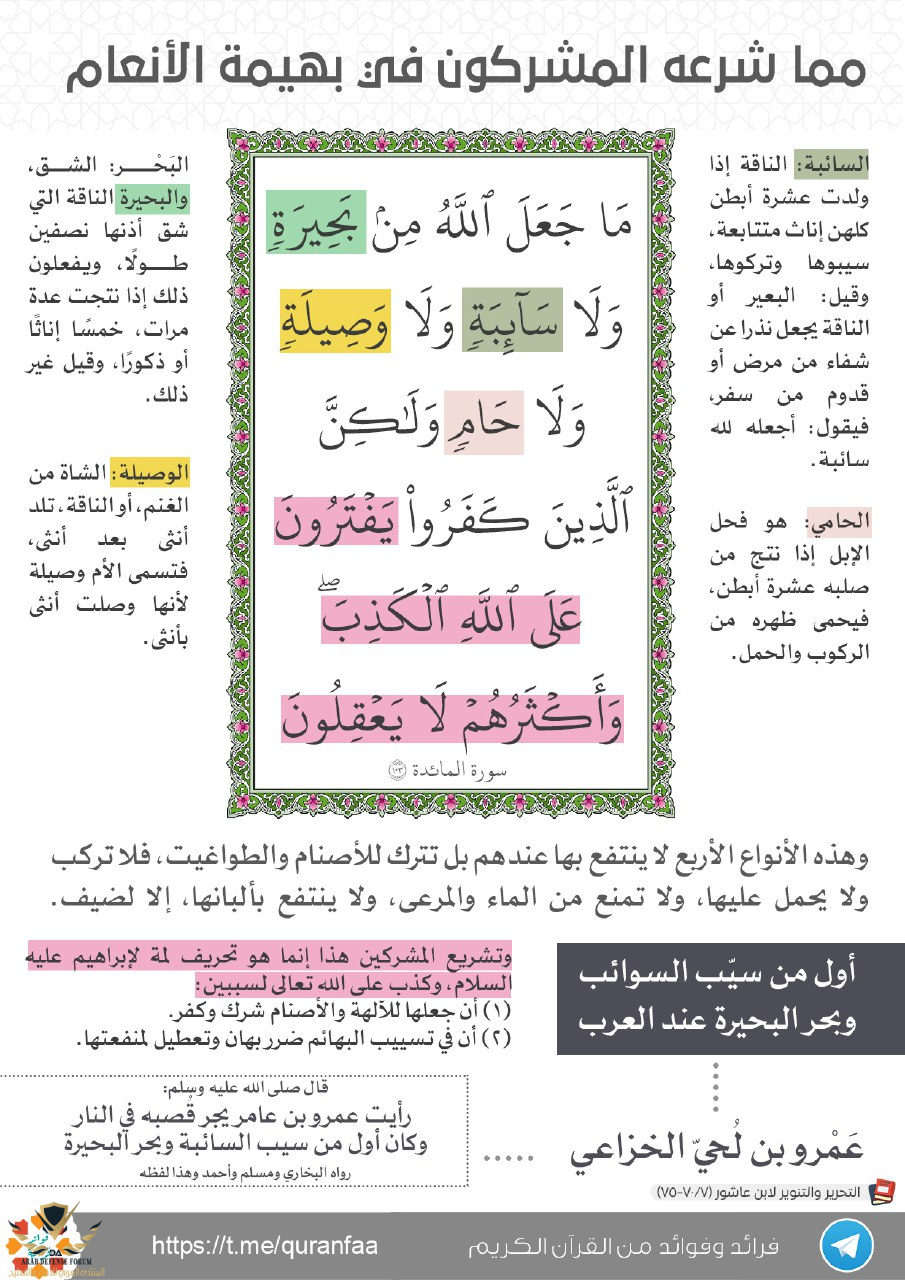 مما شرعه المشركون في بهيمة الأنعام
السائبة: الناقة إذا
ولدت عشرة أبطن
كلهن إناث متتابعة،
سيبوها وتركوها،
وقيل: البعير أو
الناقة يجعل نذرا عن
شفاء من مرض أو
قدوم من سفر،
فيقول: أجعله لله
سائبة.
الحامي: هو فحل
الإبل إذا نتج من
صلبه عشرة أبطن،
فيحمى ظهره من
الركوب والحمل.
مَا جَعَلَ ٱللَّهُ مِنۢ بَحِيرَةٖ
وَلَا سَآئِبَةٖ وَلَا وَصِيلَةٖ
وَلَا حَامٖ وَلَٰكِنَّ
ٱلَّذِينَ كَفَرُواْ يَفۡتَرُونَ
عَلَى ٱللَّهِ ٱلۡكَذِبَۖ
وَأَكۡثَرُهُمۡ لَا يَعۡقِلُونَ
سورة المائدة ١٠٣
البَحْـــر: الشق،
والبحيرة الناقة التي
شق أذنها نصفين
طــولًا، ويفعلون
ذلك إذا نتجت عدة
مرات، خمسًا إناثًا
أو ذكورًا، وقيل غير
ذلك.
الوصيلة: الشاة من
الغنم، أو الناقة، تلد
أنثى بعد أنثى،
فتسمى الأم وصيلة
لأنها وصلت أنثى
بأنثى.
وهذه الأنواع الأربع لا ينتفع بها عندهم بل تترك للأصنام والطواغيت، فلا تركب
ولا يحمل عليها، ولا تمنع من الماء والمرعى، ولا ينتفع بألبانها، إلا لضيف.
أول من سيّب السوائب
وبحر البحيرة عند العرب
وتشريع المشركين هذا إنما هو تحريف لمة لإبراهيم عليه
السلام، وكذب على الله تعالى لسببين:
(١) أن جعلها للآلهة والأصنام شرك وكفر.
(٢) أن في تسييب البهائم ضرر بهان وتعطيل لمنفعتها.
عَمْرو بن لُحيّ الخزاعي
قال صلى الله عليه وسلم:
رأيت عمرو بن عامر يجر قُصبه في النار
وكان أول من سيب السائبة وبحر البحيرة
رواه البخاري ومسلم وأحمد وهذا لفظه
التحرير والتنوير لابن عاشور (٧/ ٧٠-٧٥)
فرائد وفوائد من القرآن الكريم
https://t.me/quranfaa
ARAB DEFENSE FORUM